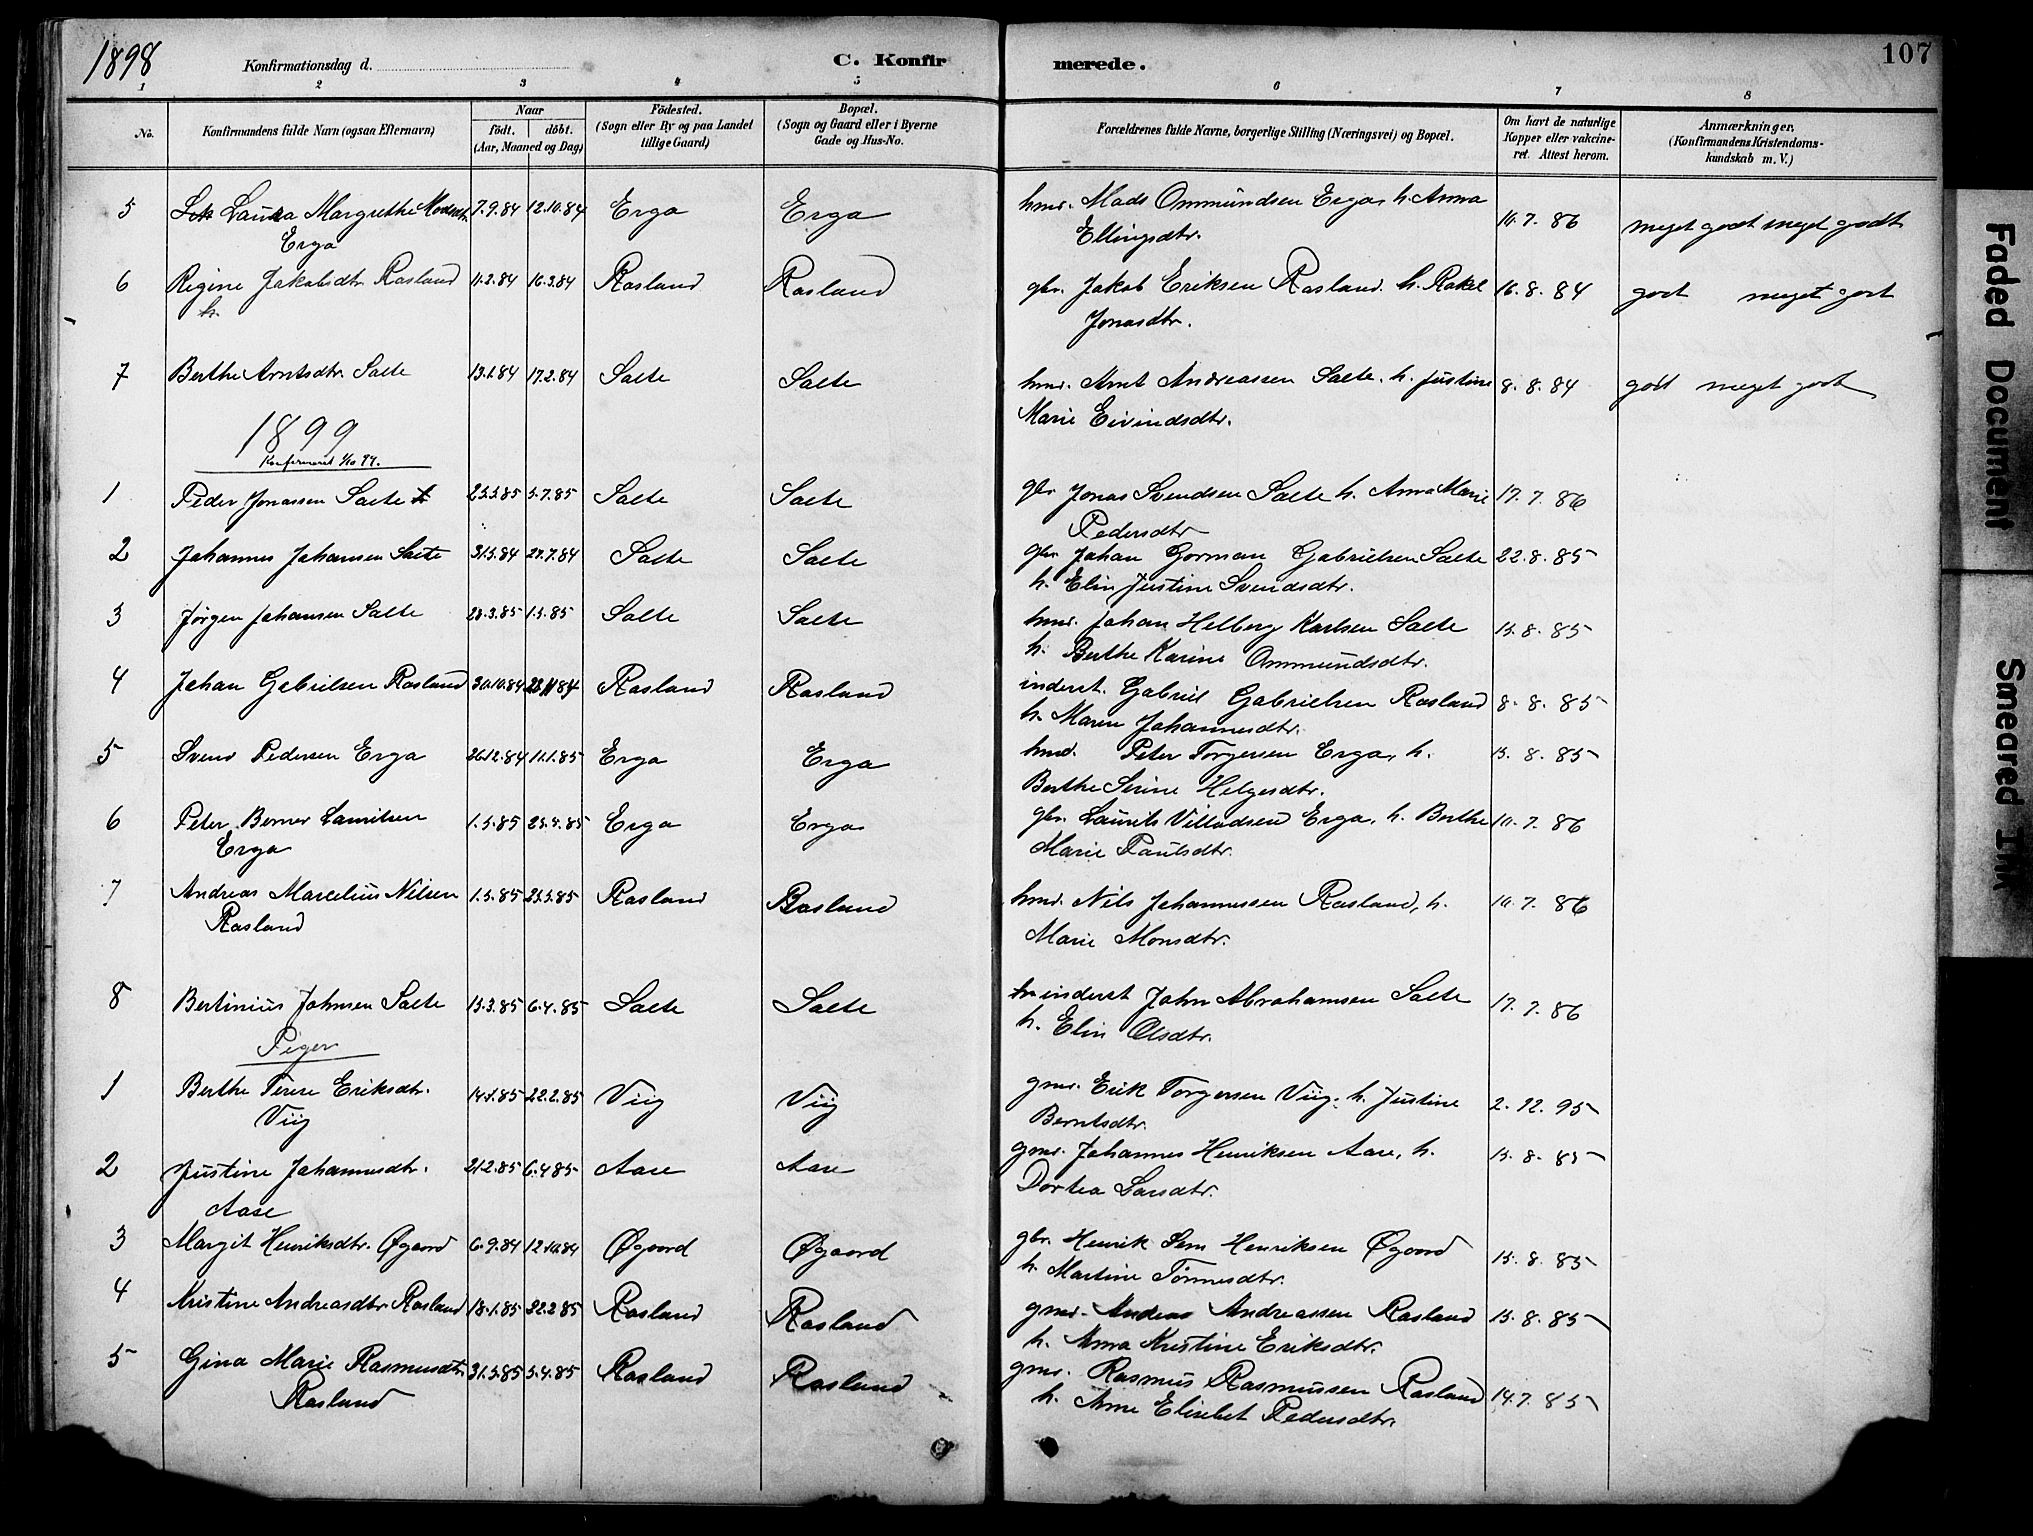 1898 Konfirmationsdag d. C. Konfirmerede. 107
1 2 3 4 5 6 7 8
No. Konfirmandens fulde Navn (ogsaa Efternavn) Naar født. døbt. (Aar, Maaned og Dag) Födested. (Sogn eller By og paa Landet tillige Gaard) Bopæl. (Sogn og Gaard eller i Byerne Gade og Hus-No. Forældrenes fulde Navne, borgerlige Stilling (Næringsvei) og Bopæl. Om havt de naturlige Kopper eller vakcineret. Attest herom. Anmærkninger. (Konfirmandens Kristendomskundskab m. V.)
5 Laura Margrethe Madsdtr. 7.9.84 12.10.84 Erga Erga hmd. Mads Ommundsen Erga, h. Anna 10.7.86 meget godt meget godt
Erga Ellingsdtr.
6 Regine Jakobsdtr. Rosland 11.2.84 16.3.84 Rosland Rosland gbr. Jakob Eriksen Rosland. h. Rakel 16.8.84 godt meget godt
h. Jonasdtr.
7 Berthe Arntsdtr. Salte 13.1.84 17.2.84 Salte Salte hmd. Arnt Andreassen Salte. h. Justine 8.8.84 godt meget godt
Marie Eivindsdtr.
1899
Konfirmeret 1/10 99.
1 Peder Jonassen Salte 23.5.85 5.7.85 Salte Salte gbr Jonas Svendsen Salte h. Anna Marie 17.7.86
Pedersdtr
2 Johannes Johansen Salte 31.5.84 20.7.84 Salte Salte gbr. Johan Gorman Gabrielsen Salte 22.8.85
h. Elin Justine Svendsdtr.
3 Jørgen Johansen Salte 28.3.85 1.5.85 Salte Salte hmd. Johan Helberg Karlsen Salte 15.8.85
h. Berthe Karine Ommundsdtr.
4 Johan Gabrielsen Rosland 30.10.84 23.11.84 Rosland Rosland inderst. Gabriel Gabrielsen Rosland 8.8.85
h. Maren Johannesdtr.
5 Svend Pedersen Erga 26.12.84 11.1.85 Erga Erga hmd. Peter Torgersen Erga, h. 15.8.85
Berthe Serine Helgesdtr.
6 Peter Berner Lauritsen 1.5.85 25.5.85 Erga Erga gbr. Laurits Villadsen Erga, h. Berthe 10.7.86
Erga Marie Paulsdtr.
7 Andreas Marcelius Nilsen 1.5.85 25.5.85 Rosland Rosland hmd. Nils Johannessen Rosland, h. 10.7.86
Rosland Marie Monsdtr.
8 Bertinius Johnsen Salte 15.3.85 6.4.85 Salte Salte inderst John Abrahamsen Salte 17.7.86
h. Elin Olsdtr.
Piger
1 Berthe Terese Eriksdtr. 14.1.85 22.2.85 Viig Viig gmd. Erik Torgersen Viig. h. Justine 2.12.95
Viig Berntsdtr.
2 Justine Johannesdtr. 21.2.85 6.4.85 Aase Aase gmd. Johannes Henriksen Aase, h. 15.8.85
Aase Dortea Larsdtr.
3 Margit Henriksdtr. Øgaard 6.9.84 12.10.84 Øgaard Øgaard gbr. Henrik Sem Henriksen Øgaard 15.8.85
h. Martine Tønnesdtr.
4 Kristine Andreasdtr. Rosland 18.1.85 22.2.85 Rosland Rosland gmd. Andreas Andreassen Rosland 15.8.85
h. Anna Kristine Eriksdtr.
5 Gina Marie Rasmusdtr. 31.3.85 5.4.85 Rosland Rosland gmd. Rasmus Rasmussen Rosland 14.7.85
Rosland h. Anne Elisebet Pedersdtr.
Faded Document
Smeared Ink